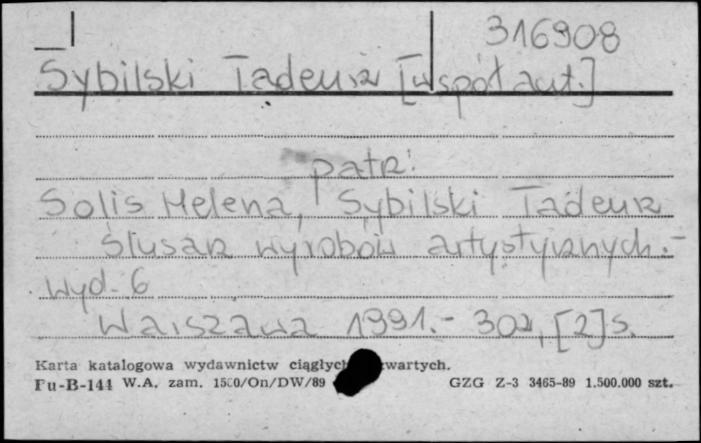 316908
Sybilski Tadeusz [współaut.]
patrz:
Solis Helena, Sybilski Tadeusz
Ślusarz wyrobów artystycznych.-
wyd. 6
Warszawa 1991.- 302, [2]s.
Karta katalogowa wydawnictw ciągłych
Pu-B-144 W.A. zam. 1500/On/DW/89 GZG Z-3 3465-89 1.500.000 szt.